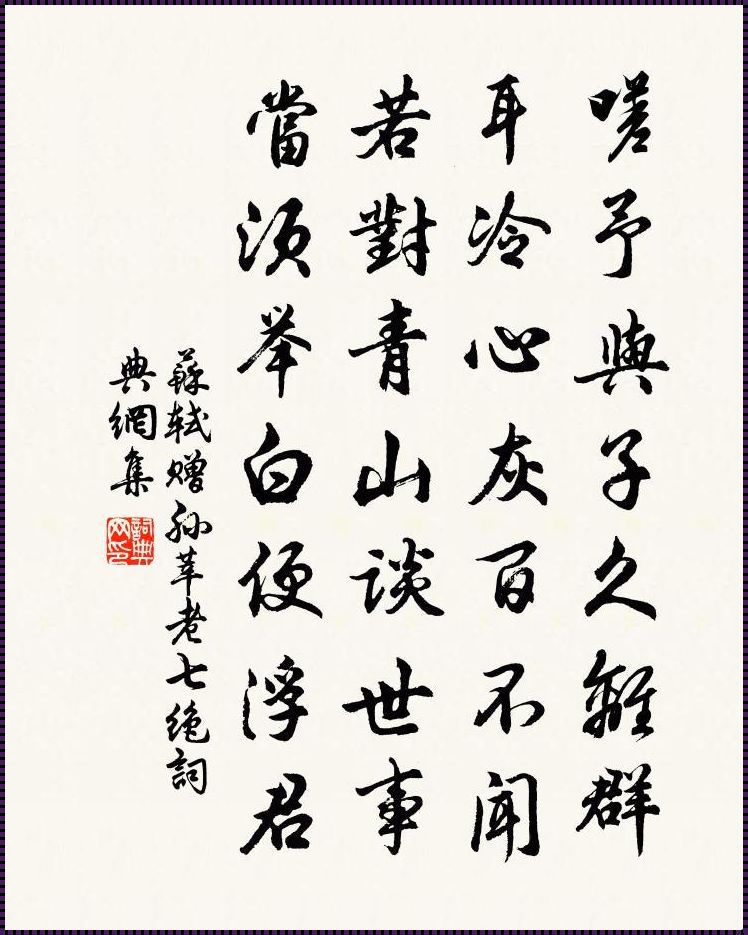 嗟予與子久離群
耳冷心灰百不聞
若對青山談世事
當須举白便浮君
蘇軾赠孙莘老七绝詞
典網集
詞典
网印